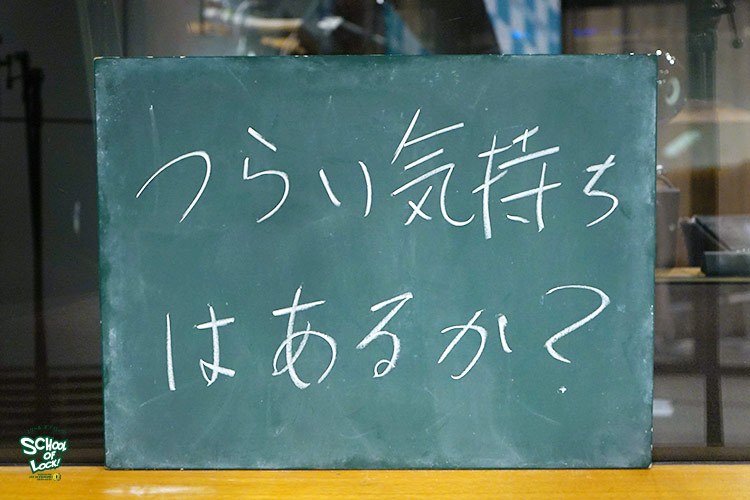 つらい気持ち
はあるか?
SCHOOL
OF
LOCK!